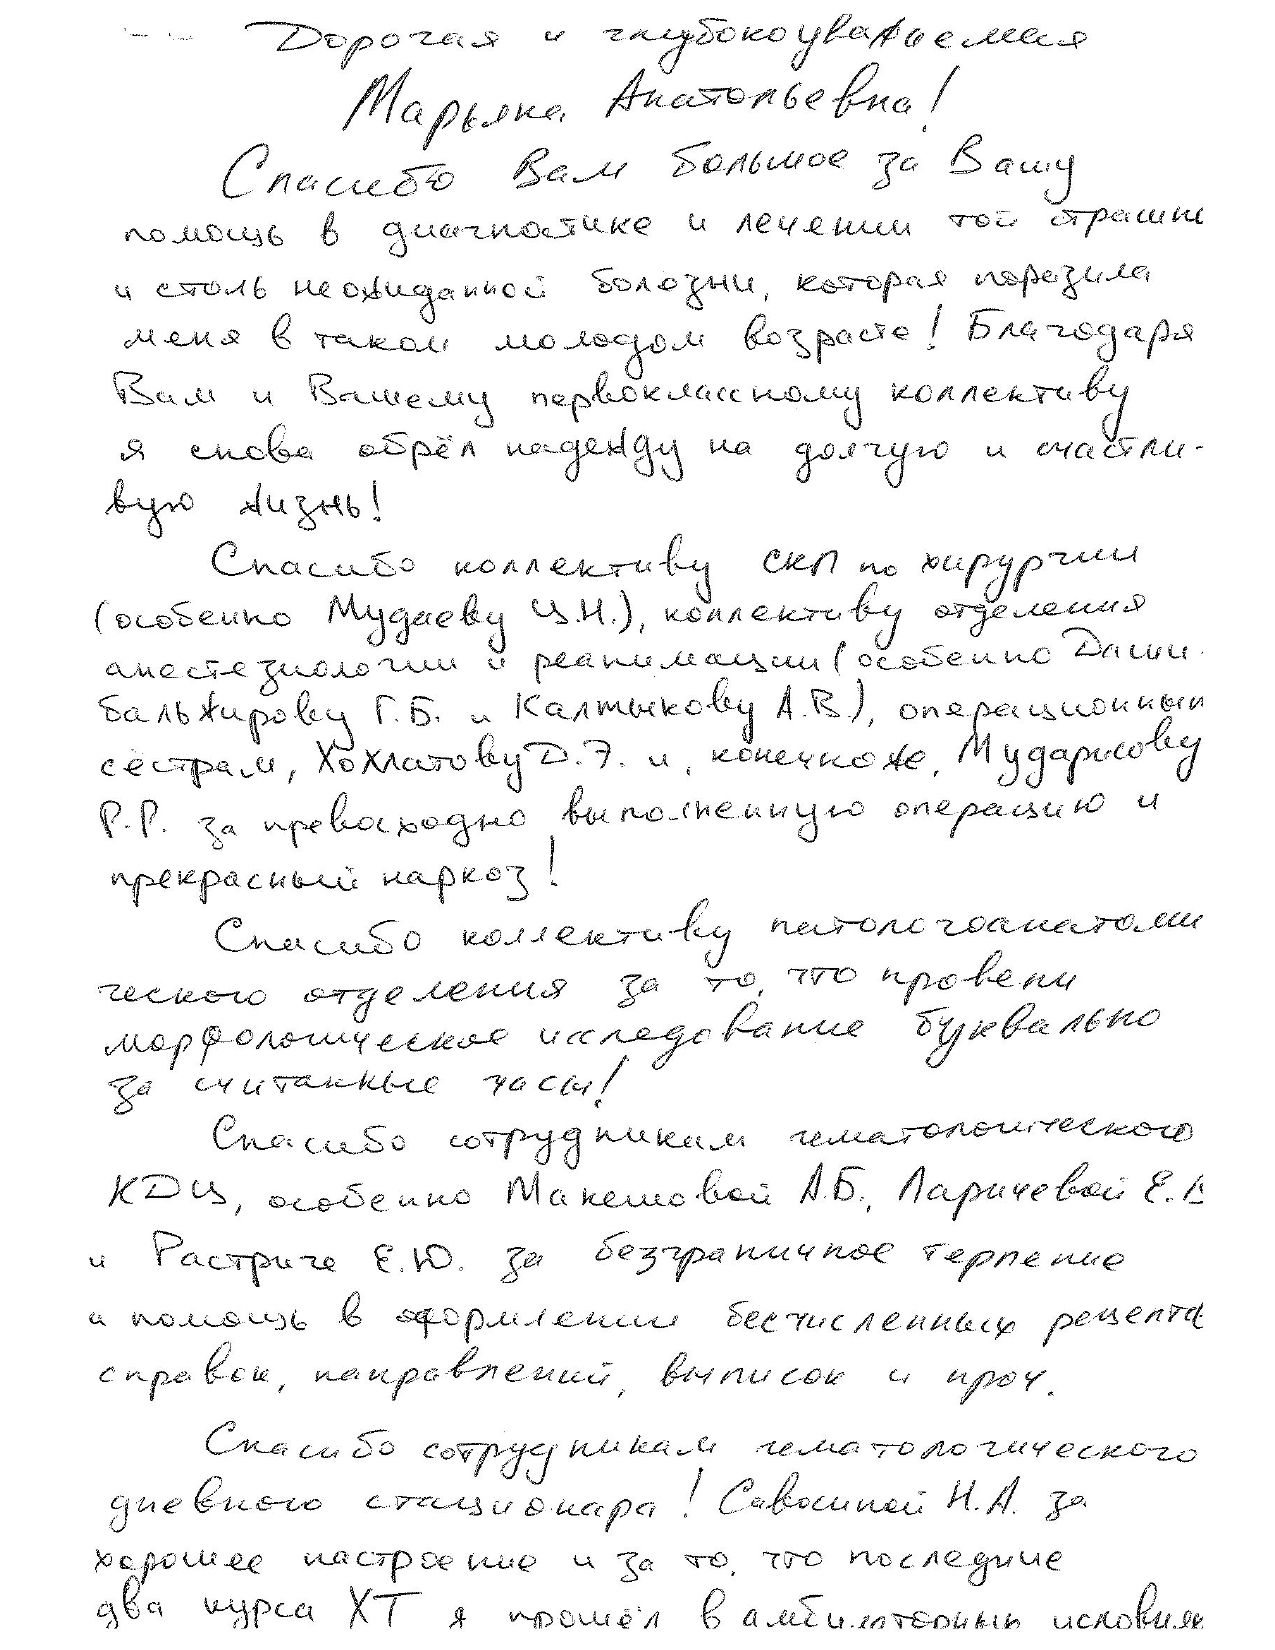 Дорогая и глубокоуважаемая
Марьяна Анатольевна!
Спасибо Вам большое за Вашу
помощь в диагностике и лечении той страшн
и столь неожиданной болезни, которая поразила
меня в таком молодом возрасте! Благодаря
Вам и Вашему первоклассному коллективу
я снова обрёл надежду на долгую и счастли-
вую жизнь!
Спасибо коллективу СКП по хирургии
(особенно Мудаеву Ц.Н.), коллективу отделения
анестезиологии и реанимации (особенно Даши-
бальжирову Г.Б. и Калтыкову А.В.), операционным
сёстрам, Хохлатову Д.Э. и, конечно же, Мударисову
Р.Р. за превосходно выполненную операцию и
прекрасный наркоз!
Спасибо коллективу патологоанатоми
ческого отделения за то, что провели
морфологическое исследование буквально
за считанные часы!
Спасибо сотрудникам гематологического
КДЦ, особенно Макешовой А.Б., Ларичевой Е.В
и Растриге Е.Ю. за безграничное терпение
и помощь в оформлении бесчисленных рецепто
справок, направлений, выписок и проч.
Спасибо сотрудникам гематологического
дневного стационара! Савосиной Н.А. за
хорошее настроение и за то, что последние
два курса ХТ я прошёл в амбулаторных условиях